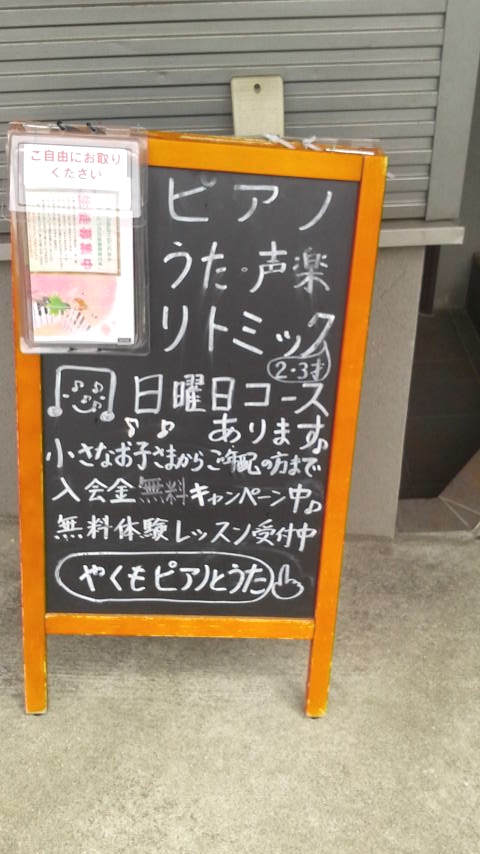 ご自由にお取り
ください
生徒募集中
ピアノ
うた・声楽
リトミック
2・3才
日曜日コース
あります♪
小さなお子さまからご年配の方まで
入会金無料キャンペーン中♪
無料体験レッスン受付中
やくもピアノとうた